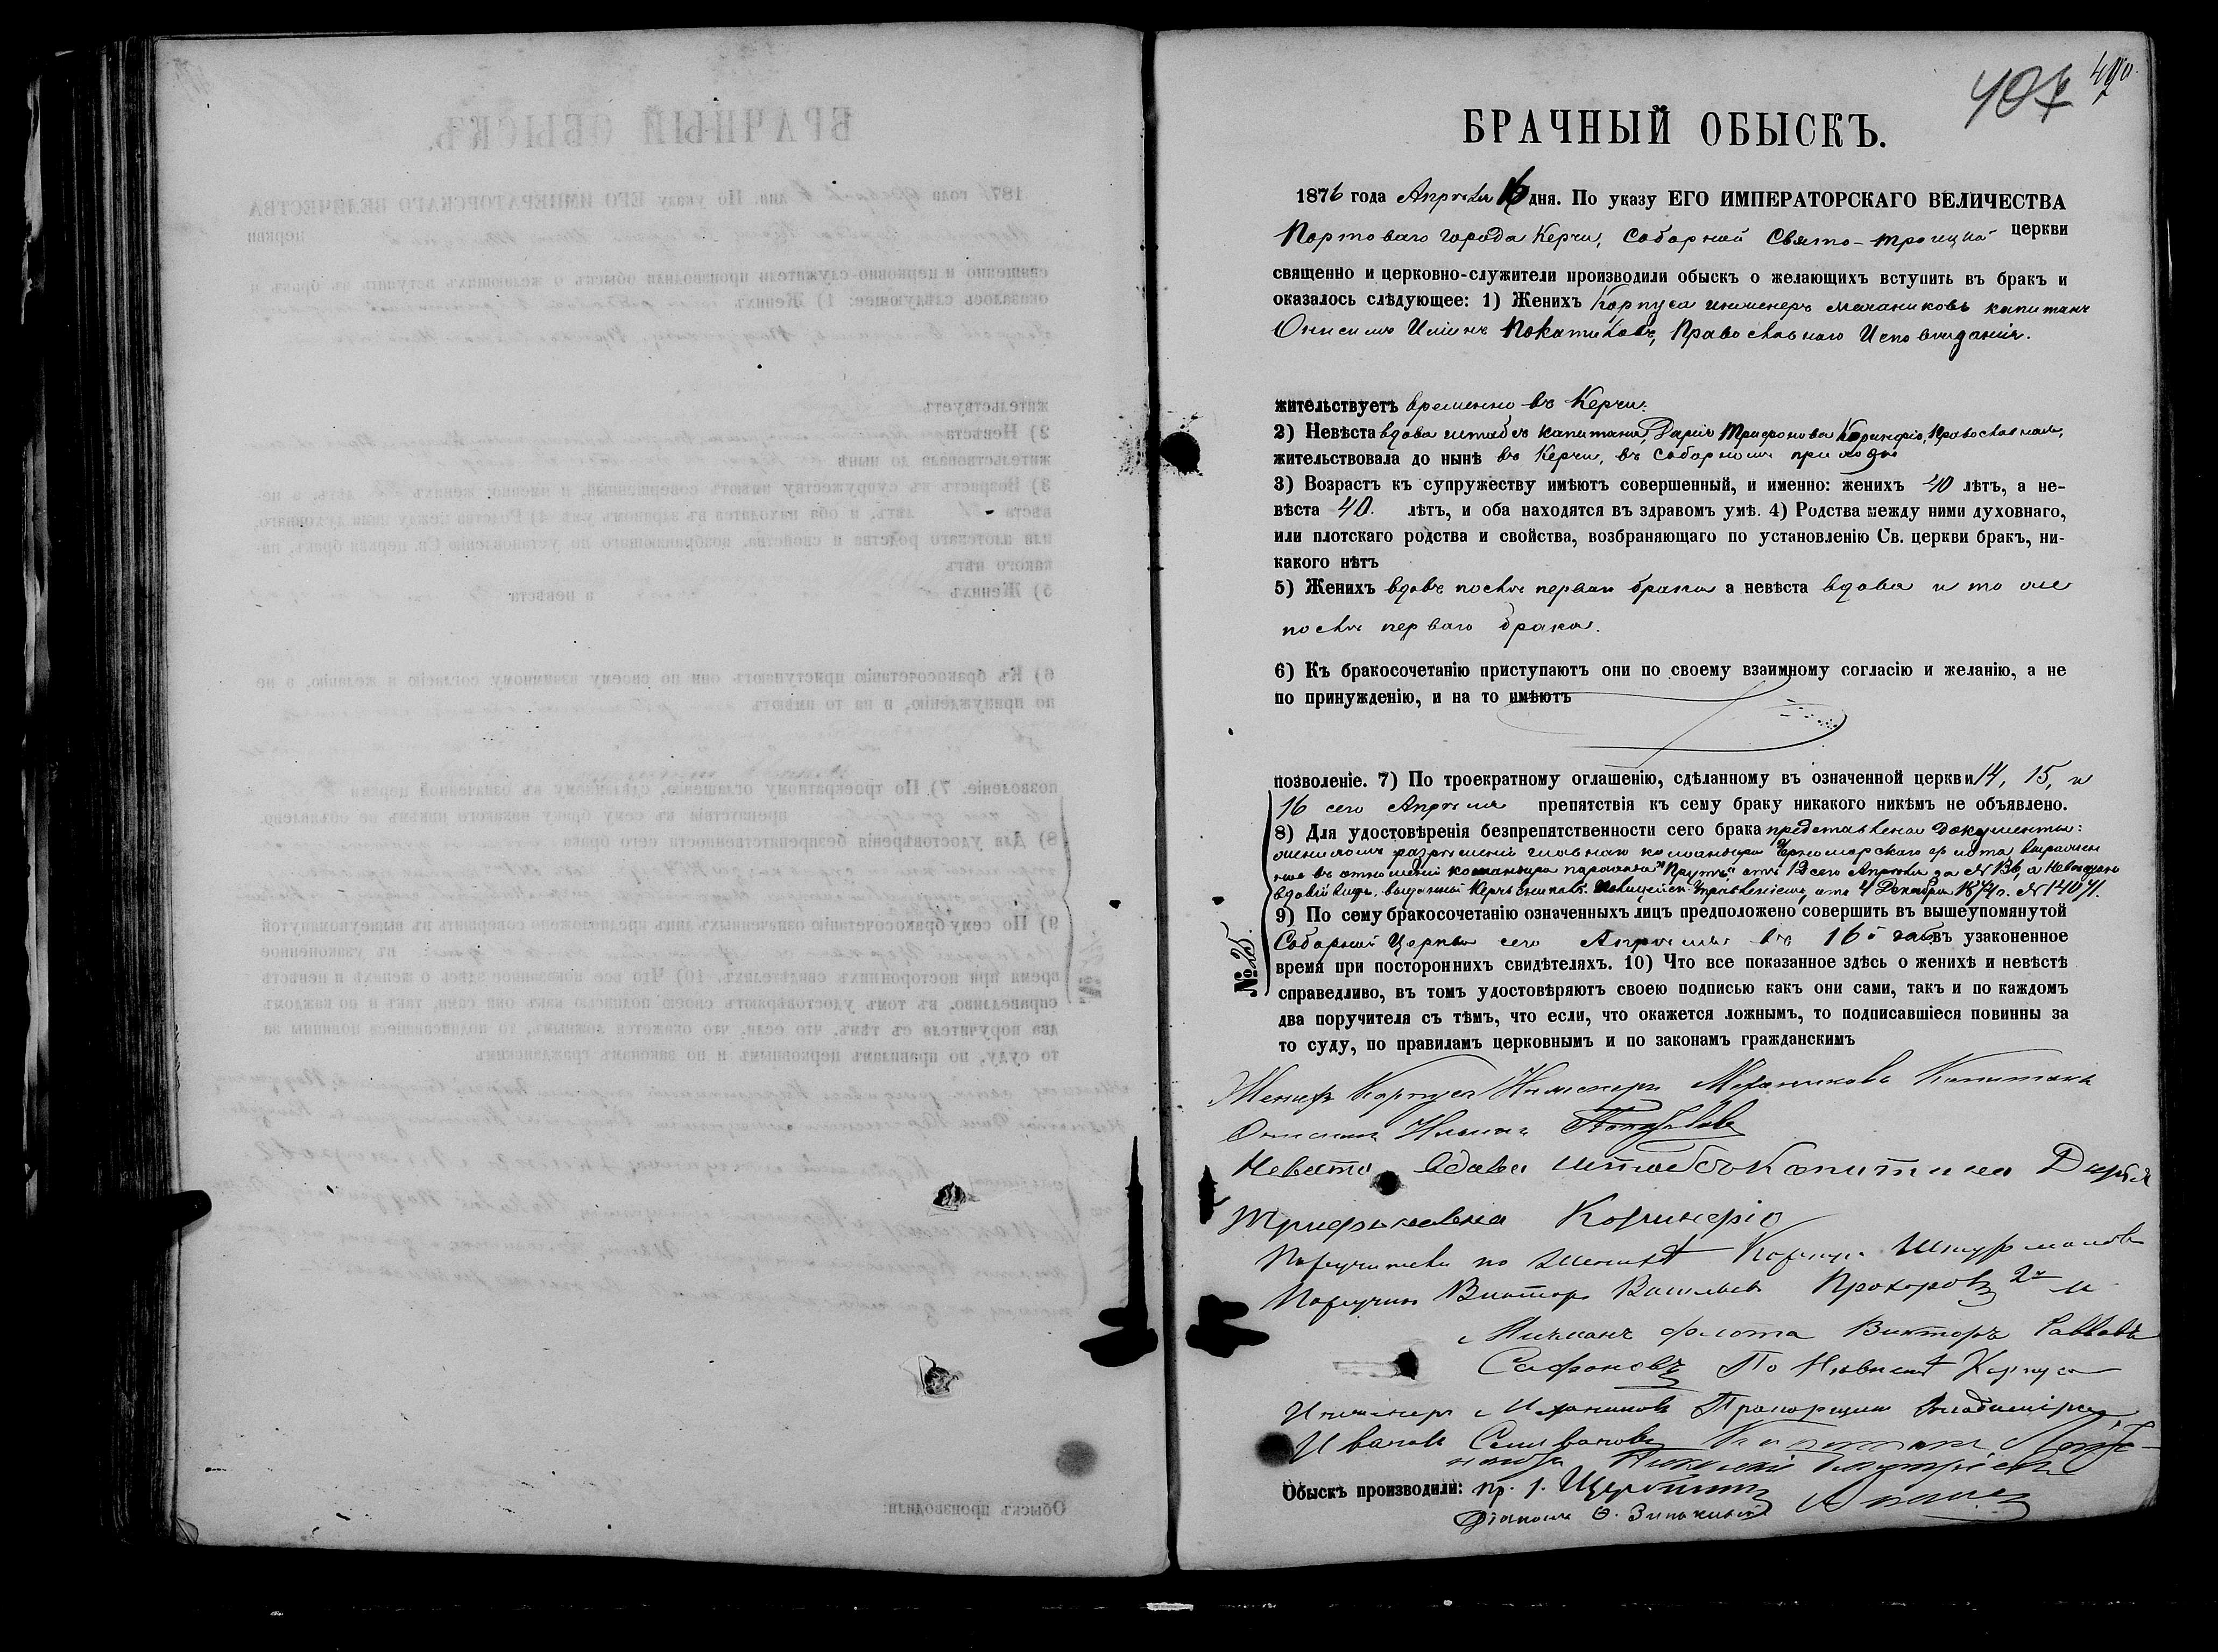 490
БРАЧНЫЙ ОБЫСКЪ.
1876 года Апрѣля 16 дня. По указу ЕГО ИМПЕРАТОРСКАГО ВЕЛИЧЕСТВА
Портоваго города Керчи, Соборной Свято-Троицкой церкви
священно и церковно-служители производили обыскъ о желающихъ вступить въ бракъ и
оказалось слѣдующее: 1) Женихъ Корпуса инженеръ механиковъ капитанъ
Онисимъ Ильинъ Покатиловъ, Православнаго Исповѣданія.
жительствуетъ временно въ Керчи.
2) Невѣста вдова штабсъ капитана, Дарія Трифонова Коринфіо, Православная,
жительствовала до нынѣ въ Керчи, въ Соборномъ приходѣ
3) Возрастъ къ супружеству имѣютъ совершенный, и именно: женихъ 40 лѣтъ, а не-
вѣста 40. лѣтъ, и оба находятся въ здравомъ умѣ. 4) Родства между ними духовнаго,
или плотскаго родства и свойства, возбраняющаго по установленію Св. церкви бракъ, ни-
какого нѣтъ
5) Женихъ вдовъ послѣ перваго брака а невѣста вдова и то же
послѣ перваго брака.
6) Къ бракосочетанію приступаютъ они по своему взаимному согласію и желанію, а не
по принужденію, и на то имѣютъ
позволеніе. 7) По троекратному оглашенію, сдѣланному въ означенной церкви 14, 15, и
16 сего Апрѣля препятствія къ сему браку никакого никѣмъ не объявлено.
8) Для удостовѣренія безпрепятственности сего брака представлены документы:
женихомъ разрѣшеніе главнаго командира Черноморскаго флота выражен
ное въ отношеніи командира парохода "Прутъ" отъ 13 сего Апрѣля за № 136, а Невѣстою
вдовій видъ, выданный Керчь Еникольс. Полицейск. Управленіемъ, отъ 4 Декабря 1874 г. № 14041.
9) По сему бракосочетанію означенныхъ лицъ предположено совершить въ вышеупомянутой
Соборной Церкви сего Апрѣля въ 16 й въ узаконенное
время при постороннихъ свидѣтеляхъ. 10) Что все показанное здѣсь о женихѣ и невѣстѣ
№ 25.
справедливо, въ томъ удостовѣряютъ своею подписью какъ они сами, такъ и по каждомъ
два поручителя съ тѣмъ, что если, что окажется ложнымъ, то подписавшіеся повинны за
то суду, по правиламъ церковнымъ и по законамъ гражданскимъ
Женихъ Корпуса Инженеръ Механиковъ Капитанъ
Онисимъ Ильинъ Покатиловъ
Невѣста Вдова Штабсъ Капитана Дарья
Трифоновна Коринфіо
Поручители по женихѣ Корпуса Штурмановъ
Поручикъ Викторъ Васильевъ Прохоровъ 2й и
Мичманъ флота Викторъ Саввовъ
Сафоновъ По Невѣстѣ Корпуса
Инженеръ Механиковъ Прапорщикъ Владиміръ
Ивановъ Селивановъ Капитанъ
Николай
Обыскъ производили: пр. І. Щербина
Діаконъ Ѳ.